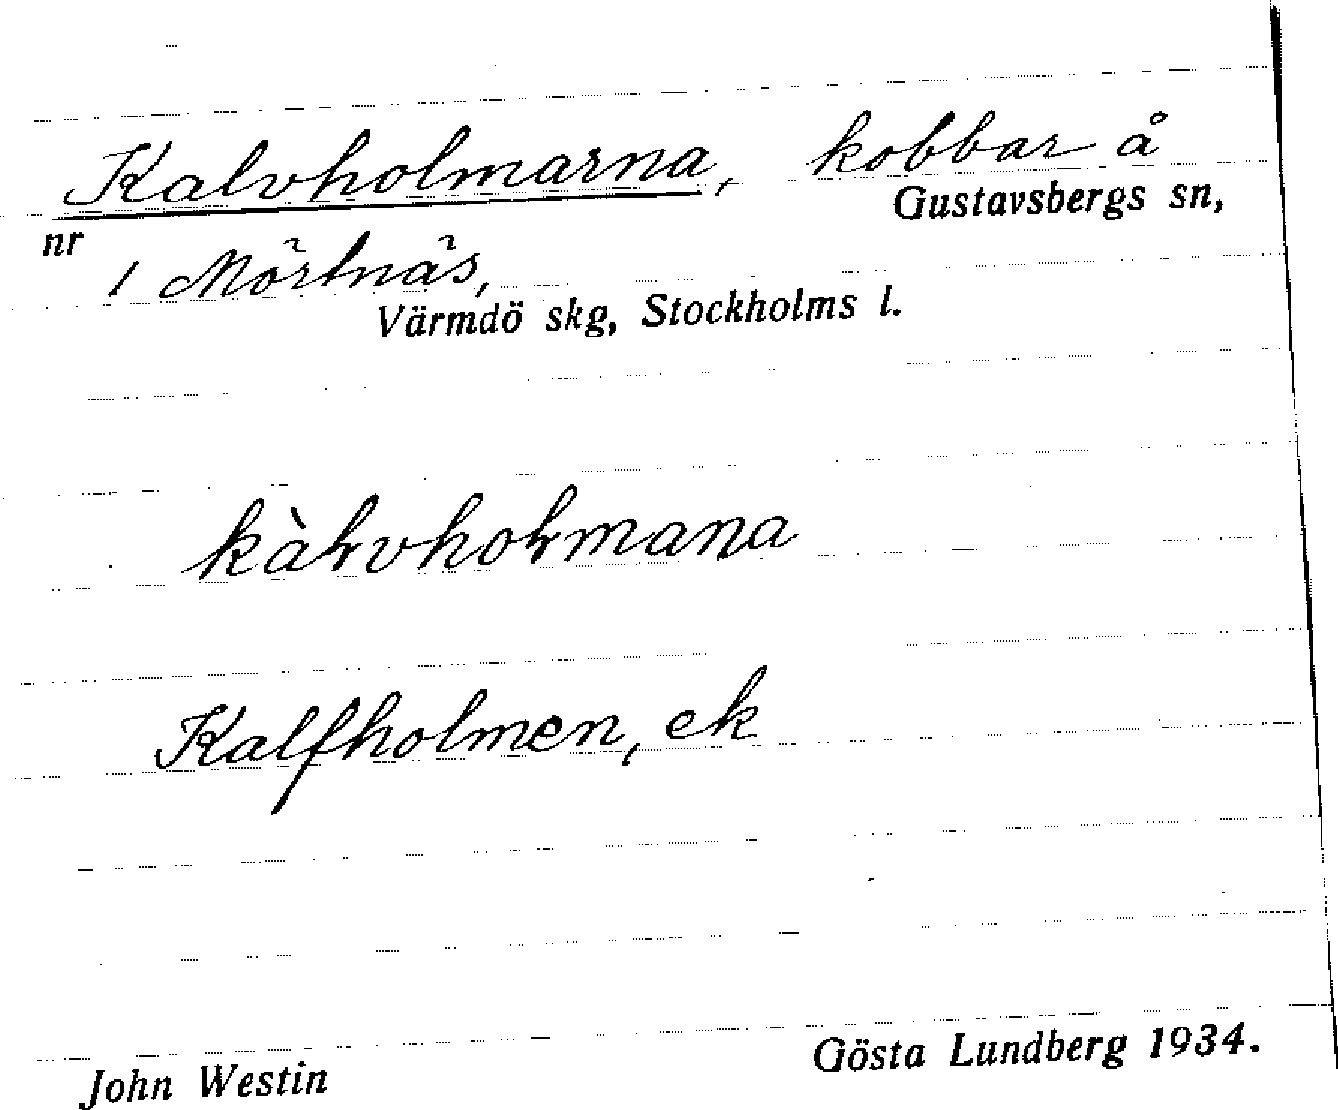 Kalvholmarna, kobbar å
Gustavsbergs sn,
nr 1 Mörtnäs,
Värmdö skg, Stockholms l.
kàɫvhoɫmana
Kalfholmen, ek
John Westin
Gösta Lundberg 1934.